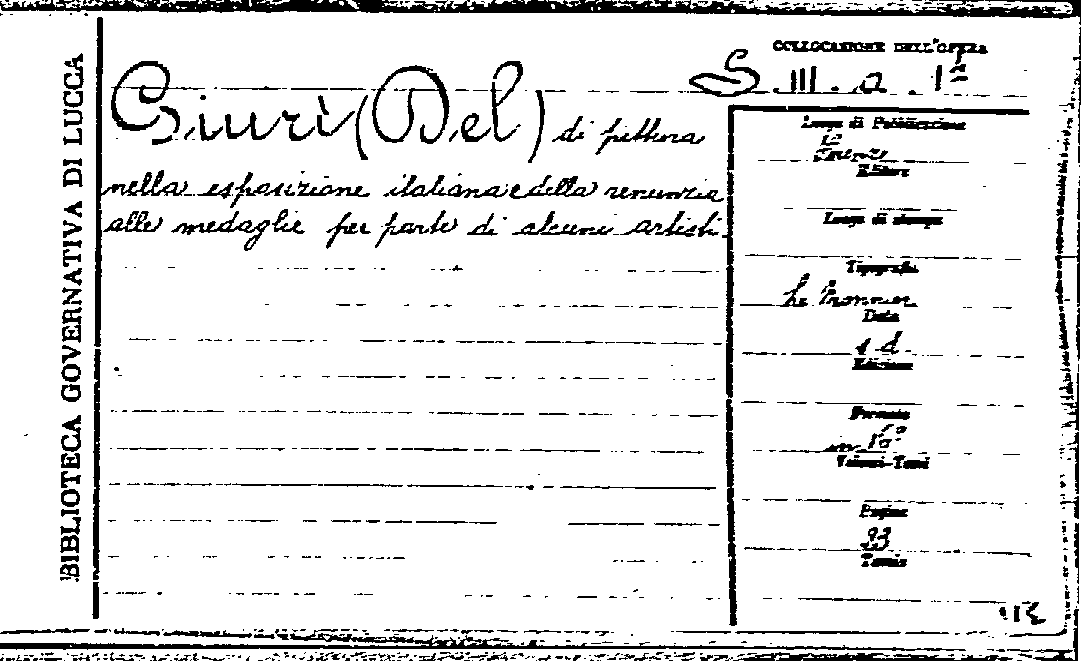 BIBLIOTECA GOVERNATIVA DI LUCCA
COLLOCAZIONE DELL'OPERA
S. III. a. 12
Giurì (Del) di pittura
nella esposizione italiana e della renunzia
alle medaglie per parte di alcuni artisti.
Luogo di Pubblicazione
Firenze
Editore
Luogo di stampa
Tipografia
Le Monnier
Data
s. d.
Edizione
Formato
in 16°
Volumi-Tomi
Pagine
23
Tavole